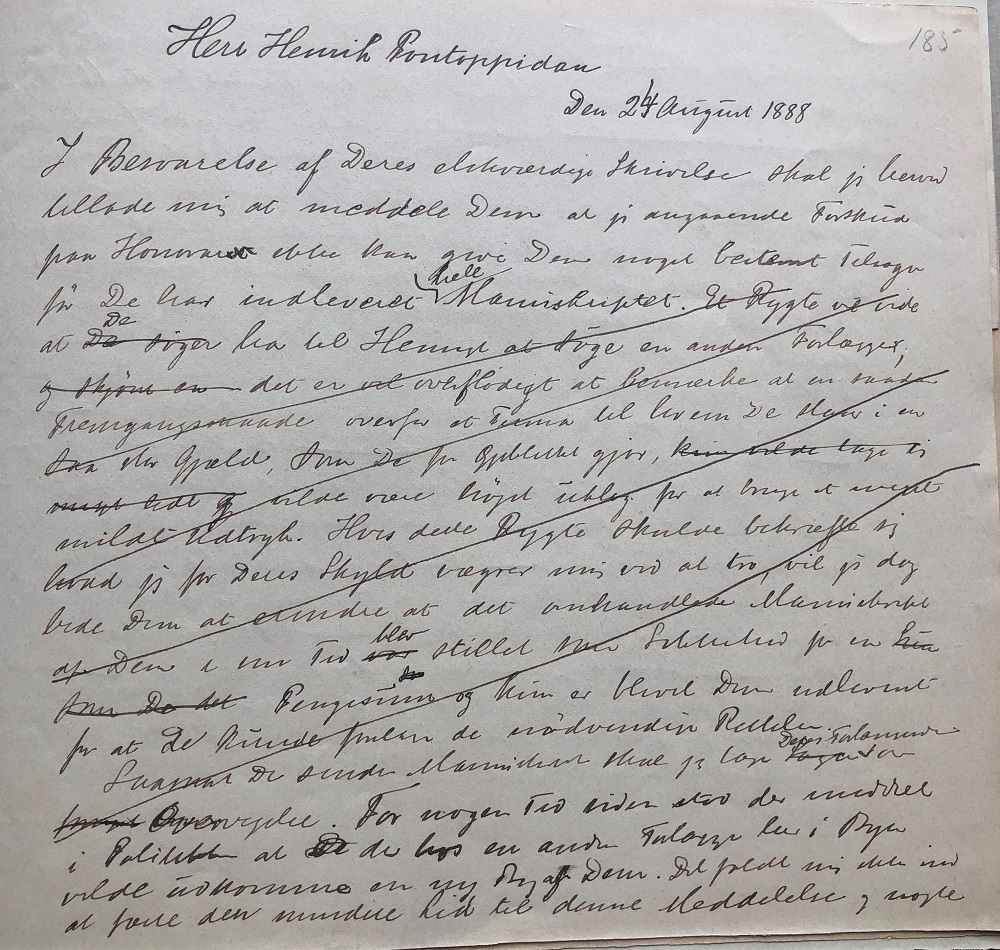 185
Herr Henrik Pontoppidan
Den 24 August 1888
I Besvarelse af Deres elskværdige Skrivelse skal jeg herved
tillade mig at meddele Dem at jeg angaaende Forskud
paa Honoraret ikke kan give Dem noget bestemt Tilsagn
hele
før De har indleveret Manuskriptet. Et Rygte vil vide
De
at De søger har til Hensigt at søge en anden Forlægger,
og skjønt en det er vel overflødigt at bemærke at en saadan
Fremgangsmaade overfor et Firma til hvem De staar i en
saa stor Gjæld, som De for Øjeblikket gjør, kun vilde tage sig
meget lidt og vilde være højst ublig for at bruge et meget
mildt Udtryk. Hvis dette Rygte skulde bekræfte sig
hvad jeg for Deres Skyld vægrer mig ved at tro, vil jeg dog
bede Dem at erindre at det omhandlede Manuskript
blev
af Dem i sin Tid var stillet som Sikkerhed for en
som De det Pengesum og kun er blevet Dem udleveret
for at De kunde foretage de nødvendige Rettelser.
Saasnart De sender Manuskriptet skal jeg tage Deres Forlangende
under Overvejelse. For nogen Tid siden stod der meddelt
i Politiken at De der hos en anden Forlægger her i Byen
vilde udkomme en ny Bog af Dem. Det faldt mig ikke ind
at fæste den mindste Lid til denne Meddelelse og nogle